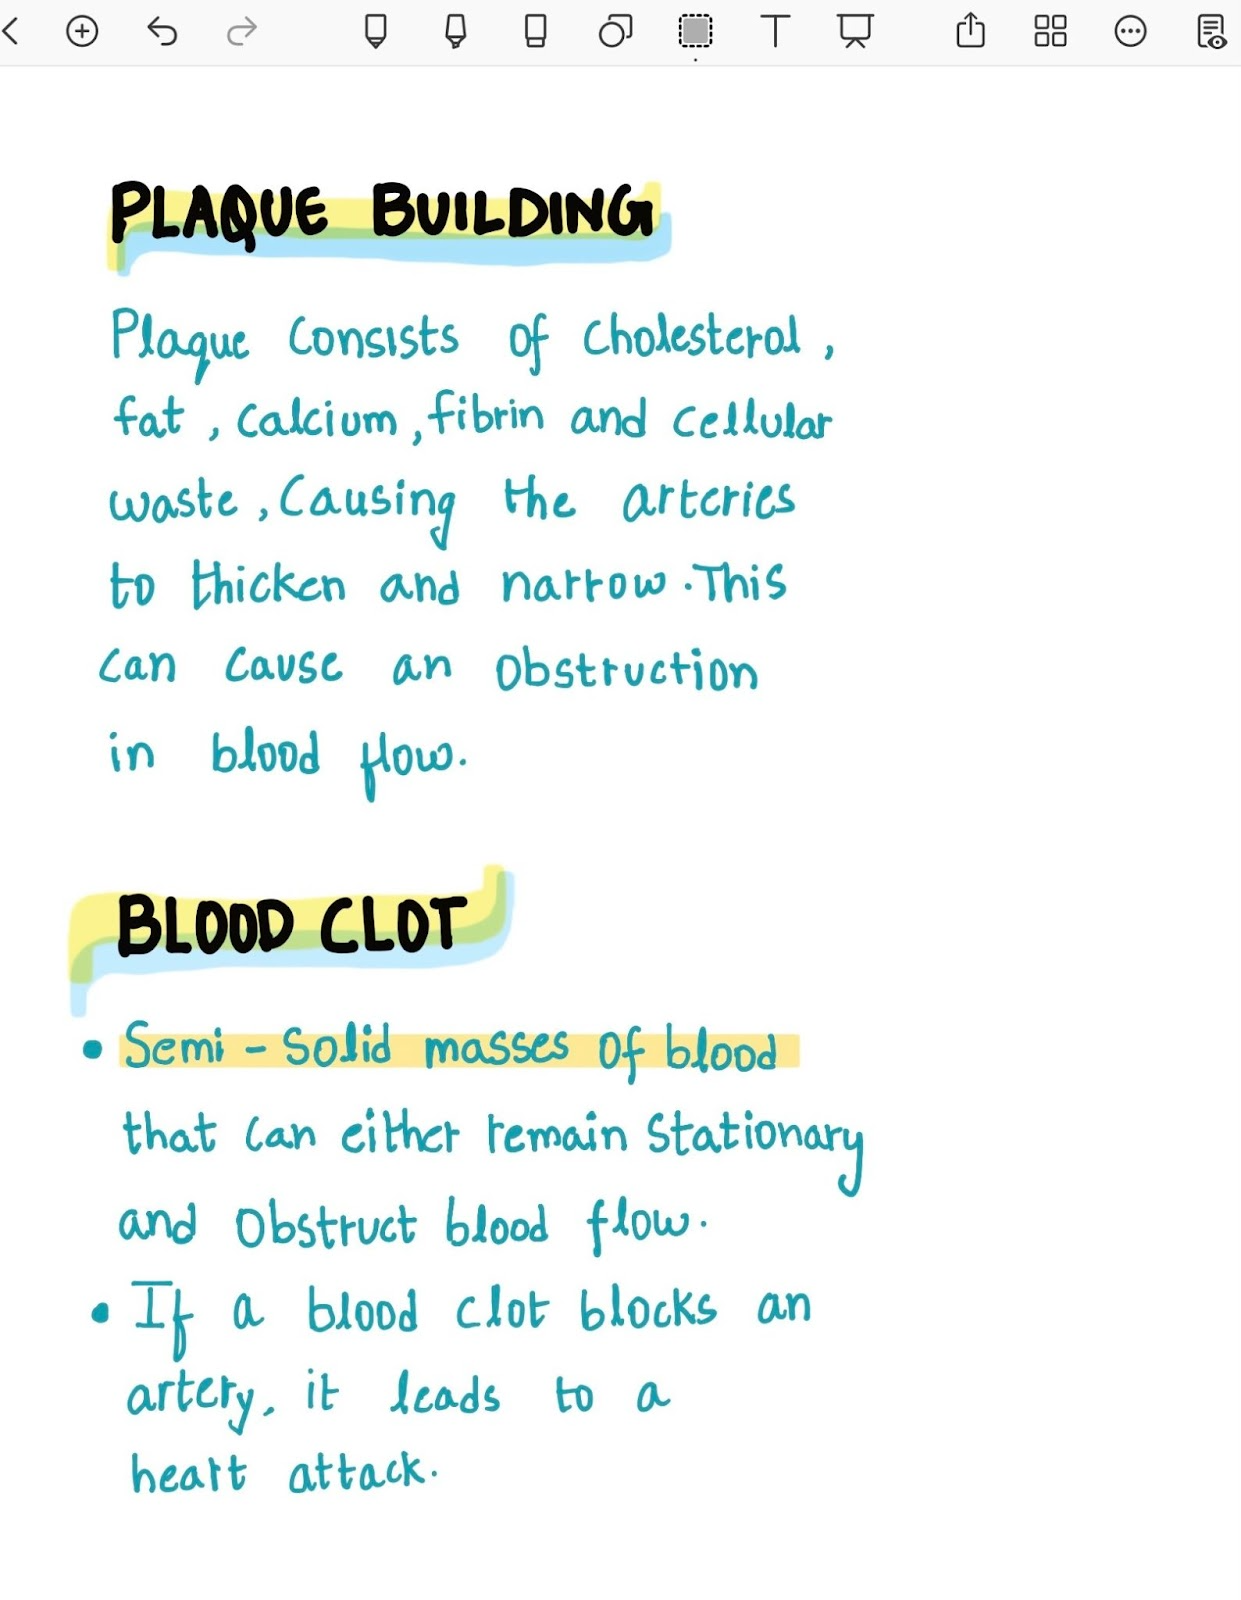 PLAQUE BUILDING
Plaque consists of cholesterol,
fat, calcium, fibrin and cellular
waste, causing the arteries
to thicken and narrow. This
can cause an obstruction
in blood flow.
BLOOD CLOT
• Semi-solid masses of blood
that can either remain stationary
and obstruct blood flow.
• If a blood clot blocks an
artery, it leads to a
heart attack.